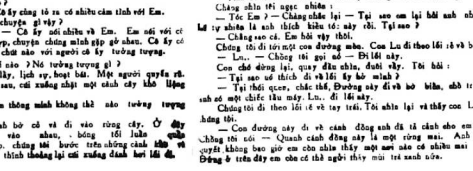 Cô ấy cũng tỏ ra có nhiều cảm tình với Em.
chuyện gì vậy ?
— Cô ấy nói nhiều về Em. Em nói với cô
chuyện chúng mình gặp gỡ nhau. Cô ấy có
chút nào với người cô ấy tưởng tượng.
nào ? Nó tưởng tượng gì ?
lịch sự, hoạt bát. Một người quyến rũ.
sau, cúi xuống nhặt một cành cây khô
thông minh không thể nào tưởng tượng
bờ cỏ và đi vào rừng cây. Ở đây
vào nhau, bóng tối luôn
chúng tôi bước trên những cành khô và
thình thoảng lại cúi xuống đánh hơi lối đi.
Chàng nhìn tôi ngạc nhiên :
— Tóc Em ? — Chàng nhắc lại — Tại sao em lại hỏi anh
tự nhiên là anh thích kiểu tóc này rồi. Tại sao ?
— Chẳng sao cả. Em hỏi vậy thôi.
Chúng tôi đi tới một con đường mòn. Con Lu đi theo lối rẽ và
— Lu... — Chồng tôi gọi nó — Đi lối này.
Con chó dừng lại, quay đầu nhìn, đuôi vẫy. Tôi hỏi :
— Tại sao nó thích đi về lối ấy hở mình ?
— Tại thói quen, chắc thế. Đường này đi về bờ biển,
anh có một chiếc tàu máy. Lu... đi lối này.
Chúng tôi đi theo lối rẽ về tay trái. Tôi nhìn lại và thấy con
chúng tôi.
— Con đường này đi về cánh đồng anh đã tả cảnh cho em
Chồng tôi nói — Quanh cánh đồng này là một rừng mai. Anh
quyết không bao giờ em còn nhìn thấy một nơi nào có nhiều mai
Đứng ở trên đây em còn có thể ngửi thấy mùi trẻ xanh nữa.